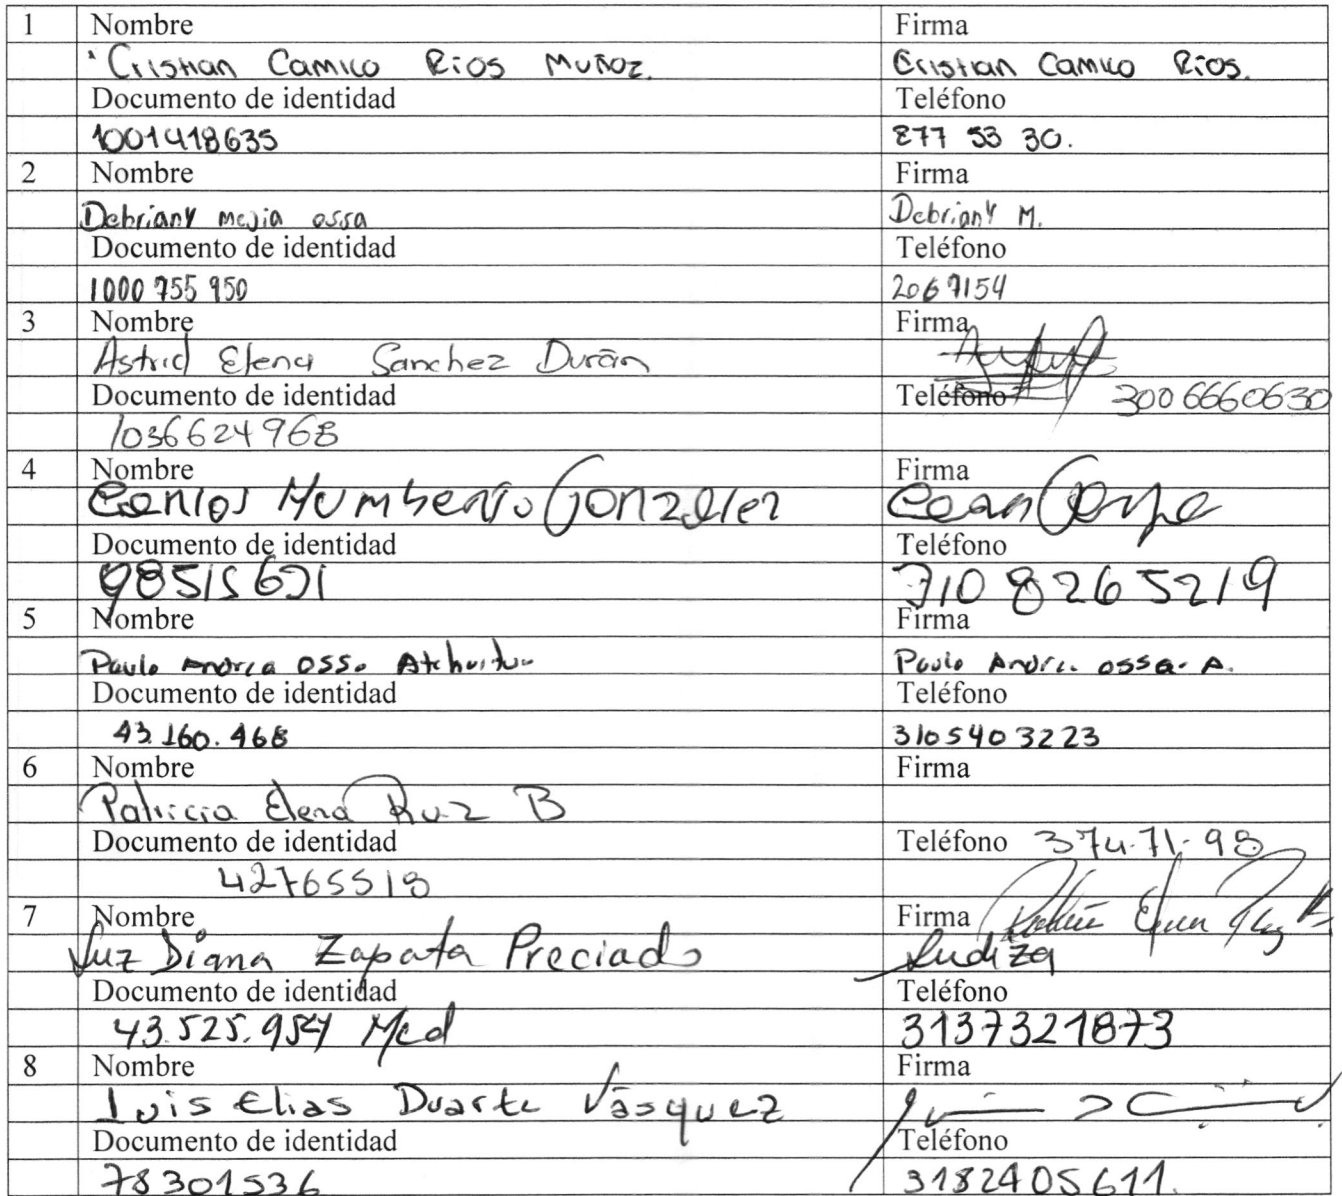 1 Nombre Firma
Cristian Camilo Rios Muñoz. Cristian Camilo Rios.
Documento de identidad Teléfono
1001418635 877 53 30.
2 Nombre Firma
Debriany mejia ossa Debriany M.
Documento de identidad Teléfono
1000 755 950 2067154
3 Nombre Firma
Astrid Elena Sanchez Durán
Documento de identidad Teléfono 3006660630
1036624968
4 Nombre Firma
Carlos Humberto Gonzalez
Documento de identidad Teléfono
98515671 310 8265219
5 Nombre Firma
Paula Andrea Ossa Paula Andrea ossa. A.
Documento de identidad Teléfono
43.160.468 3105403223
6 Nombre Firma
Patricia Elena Ruiz B
Documento de identidad Teléfono 374-71-98
42765518
7 Nombre Firma
Luz Diana Zapata Preciado Ludiza
Documento de identidad Teléfono
43.525.954 Med 3137321873
8 Nombre Firma
Luis Elias Duarte Vásquez
Documento de identidad Teléfono
78301536 3182405611.